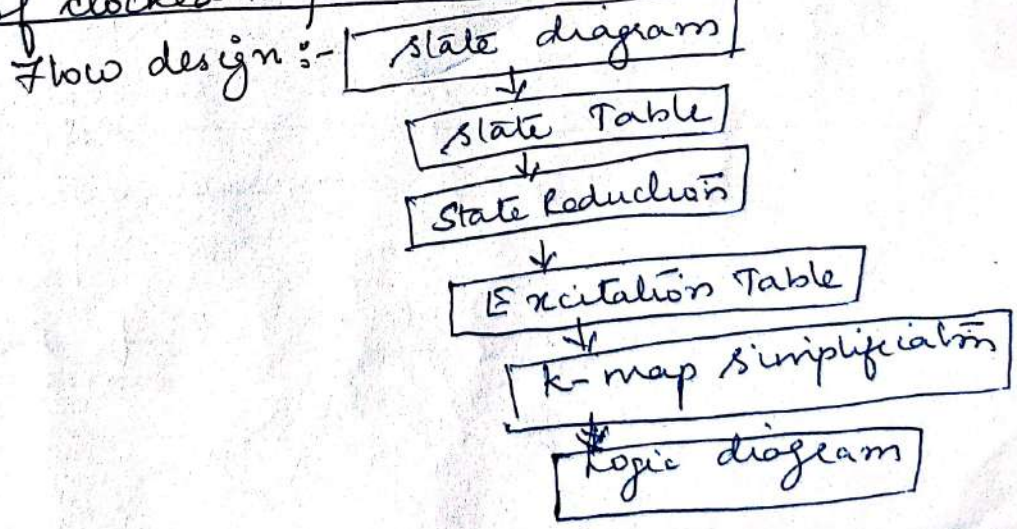 of clocked
Flow design :-
state diagram
state Table
State Reduction
Excitation Table
k-map simplification
Logic diagram